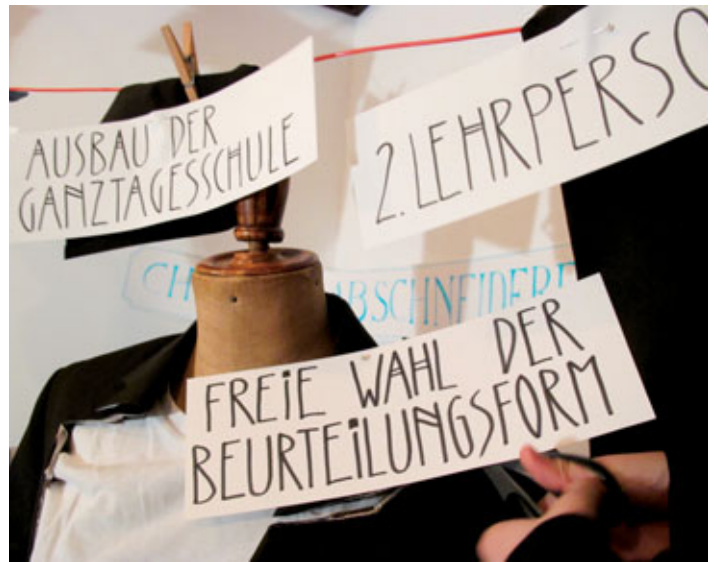 AUSBAU DER
GANZTAGESSCHULE
2. LEHRPERSO
ABSCHNEIDERE
FREIE WAHL DER
BEURTEILUNGSFORM